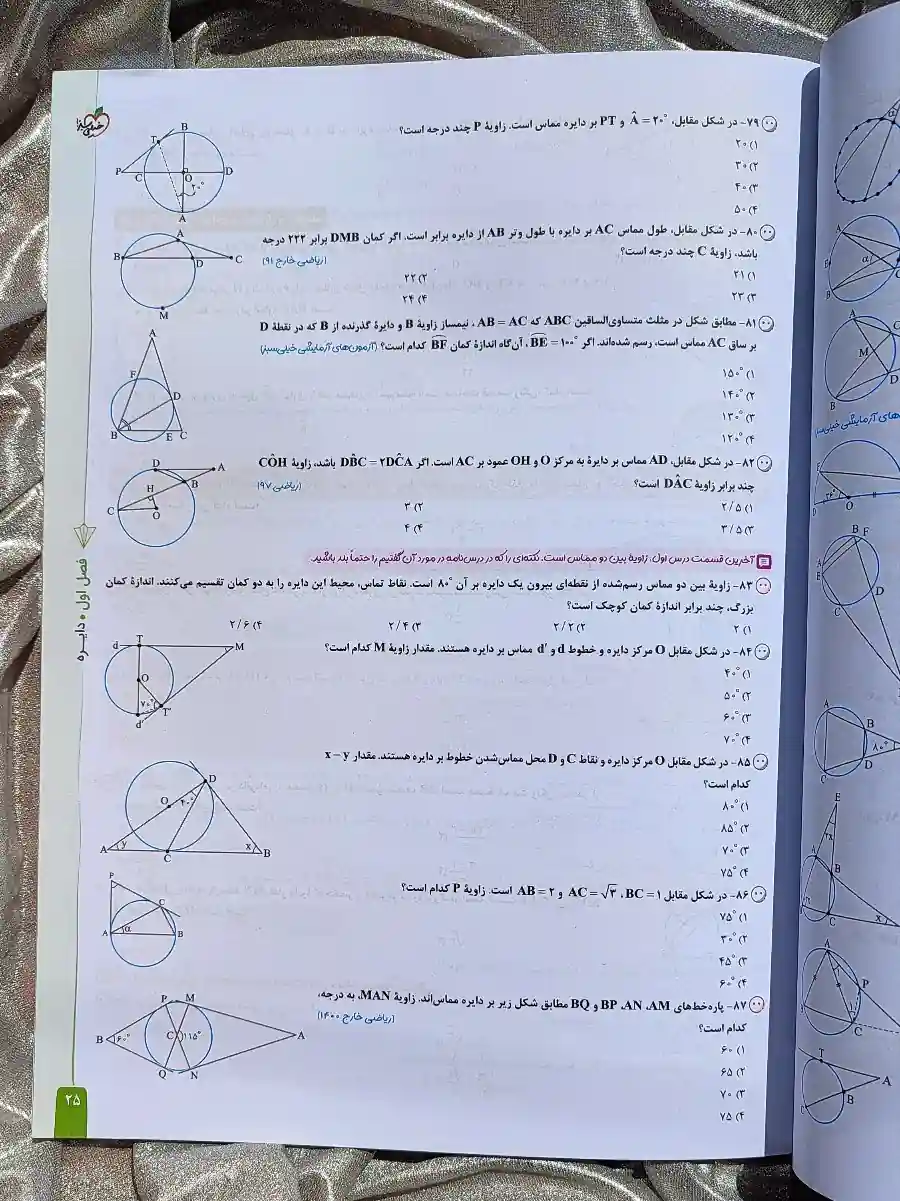 خیلی سبز
۷۹- در شکل مقابل، Â = ۲۰° و PT بر دایره مماس است. زاویهٔ P چند درجه است؟
۱) ۲۰
۲) ۳۰
۳) ۴۰
۴) ۵۰
B T P C O D ۲۰° A
۸۰- در شکل مقابل، طول مماس AC بر دایره با طول وتر AB از دایره برابر است. اگر کمان DMB برابر ۲۲۲ درجه
باشد، زاویهٔ C چند درجه است؟ (ریاضی خارج ۹۱)
۱) ۲۱ ۲) ۲۲
۳) ۲۳ ۴) ۲۴
A B D C M
۸۱- مطابق شکل در مثلث متساوی‌الساقین ABC که AB = AC ، نیمساز زاویهٔ B و دایرهٔ گذرنده از B که در نقطهٔ D
بر ساق AC مماس است، رسم شده‌اند. اگر BE = ۱۰۰° ، آن‌گاه اندازهٔ کمان BF کدام است؟ (آزمون‌های آزمایشی خیلی‌سبز)
۱) ۱۵۰°
۲) ۱۴۰°
۳) ۱۳۰°
۴) ۱۲۰°
A F D B E C
۸۲- در شکل مقابل، AD مماس بر دایرهٔ به مرکز O و OH عمود بر AC است. اگر DB̂C = ۲DĈA باشد، زاویهٔ CÔH
چند برابر زاویهٔ DÂC است؟ (ریاضی ۹۷)
۱) ۲/۵ ۲) ۳
۳) ۳/۵ ۴) ۴
D A B H C O
آخرین قسمت درس اول، زاویهٔ بین دو مماس است. نکته‌ای را که در درس‌نامه در مورد آن گفتیم را حتماً بلد باشید.
۸۳- زاویهٔ بین دو مماس رسم‌شده از نقطه‌ای بیرون یک دایره بر آن ۸۰° است. نقاط تماس، محیط این دایره را به دو کمان تقسیم می‌کنند. اندازهٔ کمان
بزرگ، چند برابر اندازهٔ کمان کوچک است؟
۱) ۲ ۲) ۲/۲ ۳) ۲/۴ ۴) ۲/۶
۸۴- در شکل مقابل O مرکز دایره و خطوط d و d′ مماس بر دایره هستند. مقدار زاویهٔ M کدام است؟
۱) ۴۰°
۲) ۵۰°
۳) ۶۰°
۴) ۷۰°
d T M O ۷۰° T′ d′
۸۵- در شکل مقابل O مرکز دایره و نقاط C و D محل مماس‌شدن خطوط بر دایره هستند. مقدار x − y
کدام است؟
۱) ۸۰°
۲) ۸۵°
۳) ۷۰°
۴) ۷۵°
D O ۴۰° A y C x B
۸۶- در شکل مقابل BC = ۱، AC = √۳ و AB = ۲ است. زاویهٔ P کدام است؟
۱) ۷۵°
۲) ۳۰°
۳) ۴۵°
۴) ۶۰°
P C A α B
۸۷- پاره‌خط‌های AM، AN، BP و BQ مطابق شکل زیر بر دایره مماس‌اند. زاویهٔ MAN، به درجه،
کدام است؟ (ریاضی خارج ۱۴۰۰)
۱) ۶۰
۲) ۶۵
۳) ۷۰
۴) ۷۵
P M B ۶۰° C ۱۱۵° A Q N
فصل اول • دایـره
۲۵